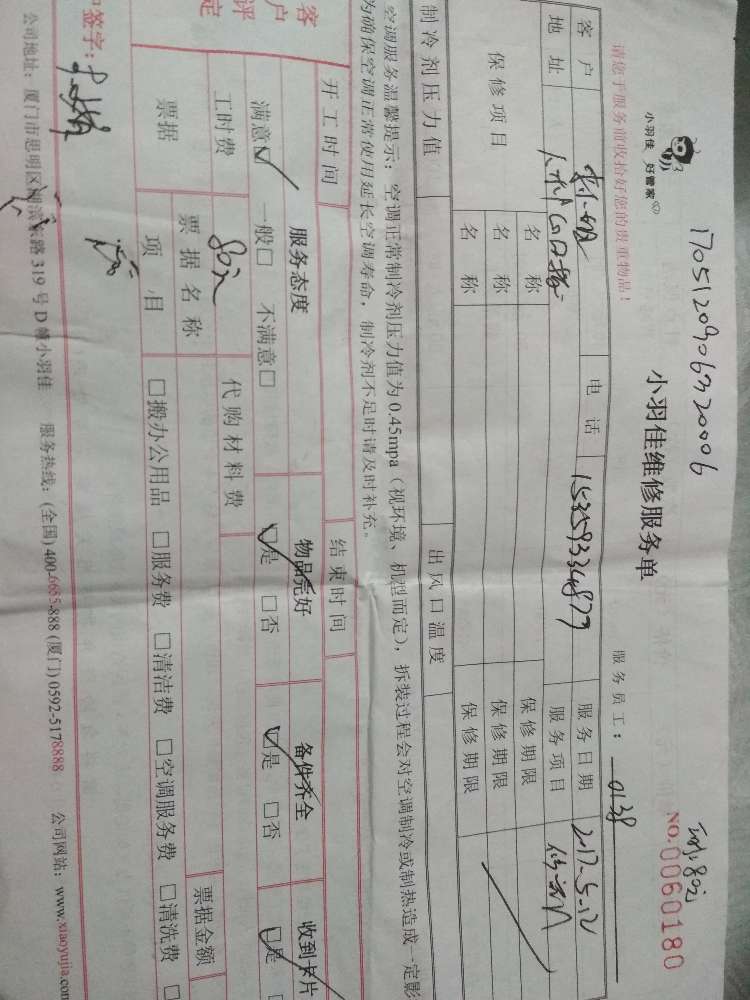 1705120906320006
小羽佳 好管家
小羽佳维修服务单
NO.0060180
请您于服务前收拾好您的贵重物品！
服务员工：0138
客户 电话 15359334879 服务日期 2017-5-12
地址 服务项目
保修项目 名称 保修期限
名称 保修期限
名称 保修期限
制冷剂压力值 出风口温度
空调服务温馨提示：空调正常制冷剂压力值为0.45mpa（视环境、机型而定），拆装过程会对空调制冷或制热造成一定影
为确保空调正常使用延长空调寿命，制冷剂不足时请及时补充。
开工时间 结束时间
客户评定 服务态度 物品完好 备件齐全 收到卡片
满意☑ 一般□ 不满意□ ☑是 □否 ☑是 □否 ☑是
工时费 80元 代购材料费
票据 票据名称 票据金额
项目 □搬办公用品 □服务费 □清洁费 □空调服务费 □清洗费 □
签字：
公司地址：厦门市思明区湖滨东路319号D幢小羽佳 服务热线：(全国)400-6655-888 (厦门)0592-5178888 公司网站：www.xiaoyujia.com